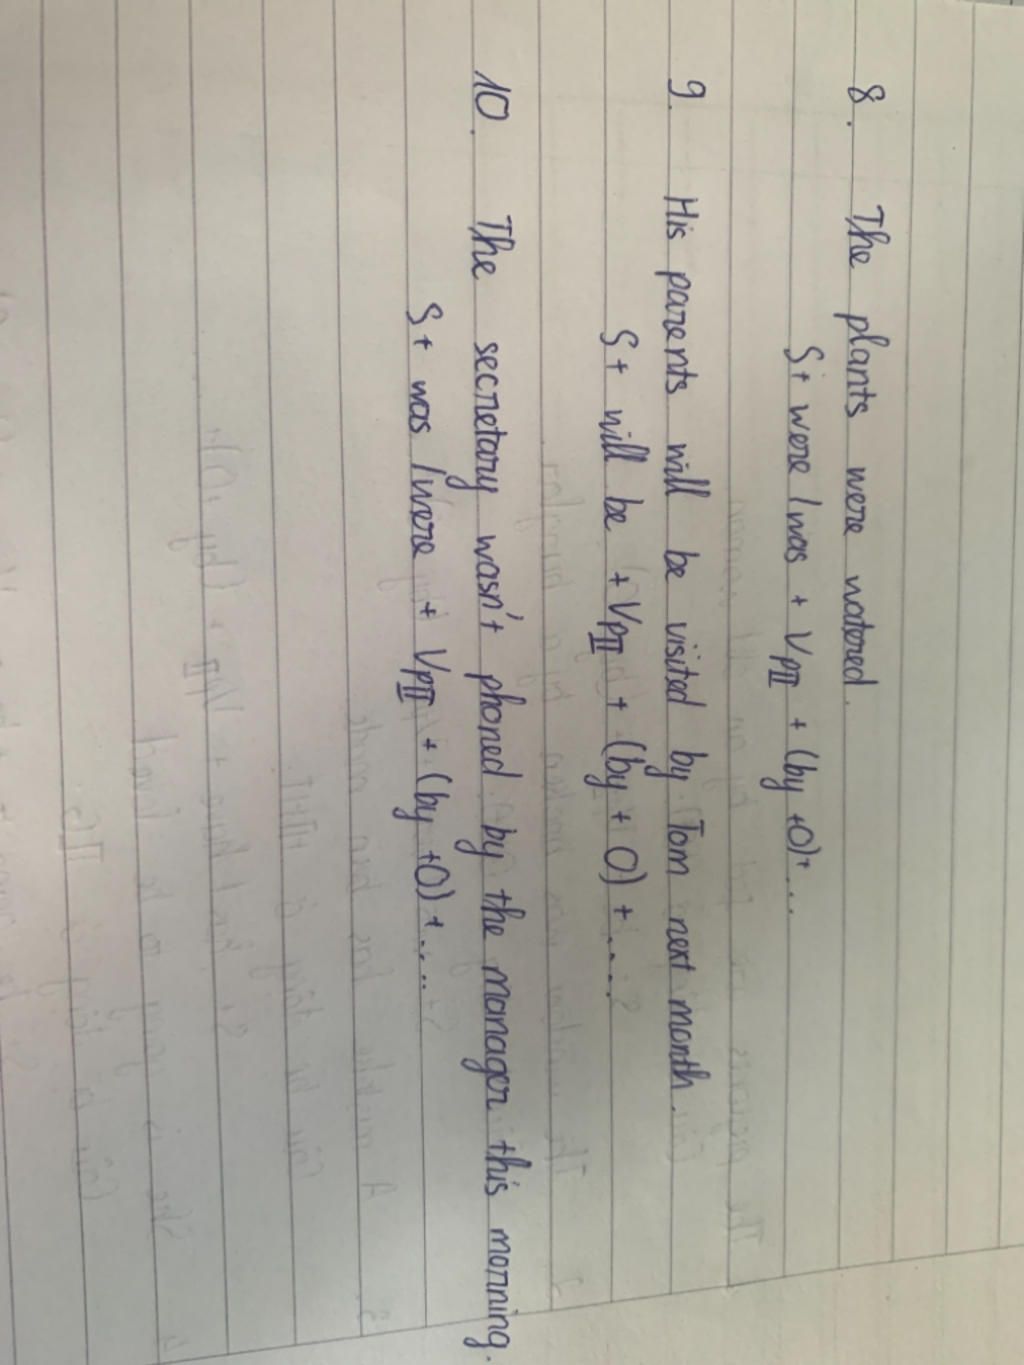 8. The plants were watered.
S + were / was + VpII + (by + O) + ...
9. His parents will be visited by Tom next month.
S + will be + VpII + (by + O) + ....
10. The secretary wasn't phoned by the manager this morning.
S + was / were + VpII + (by + O) + ....